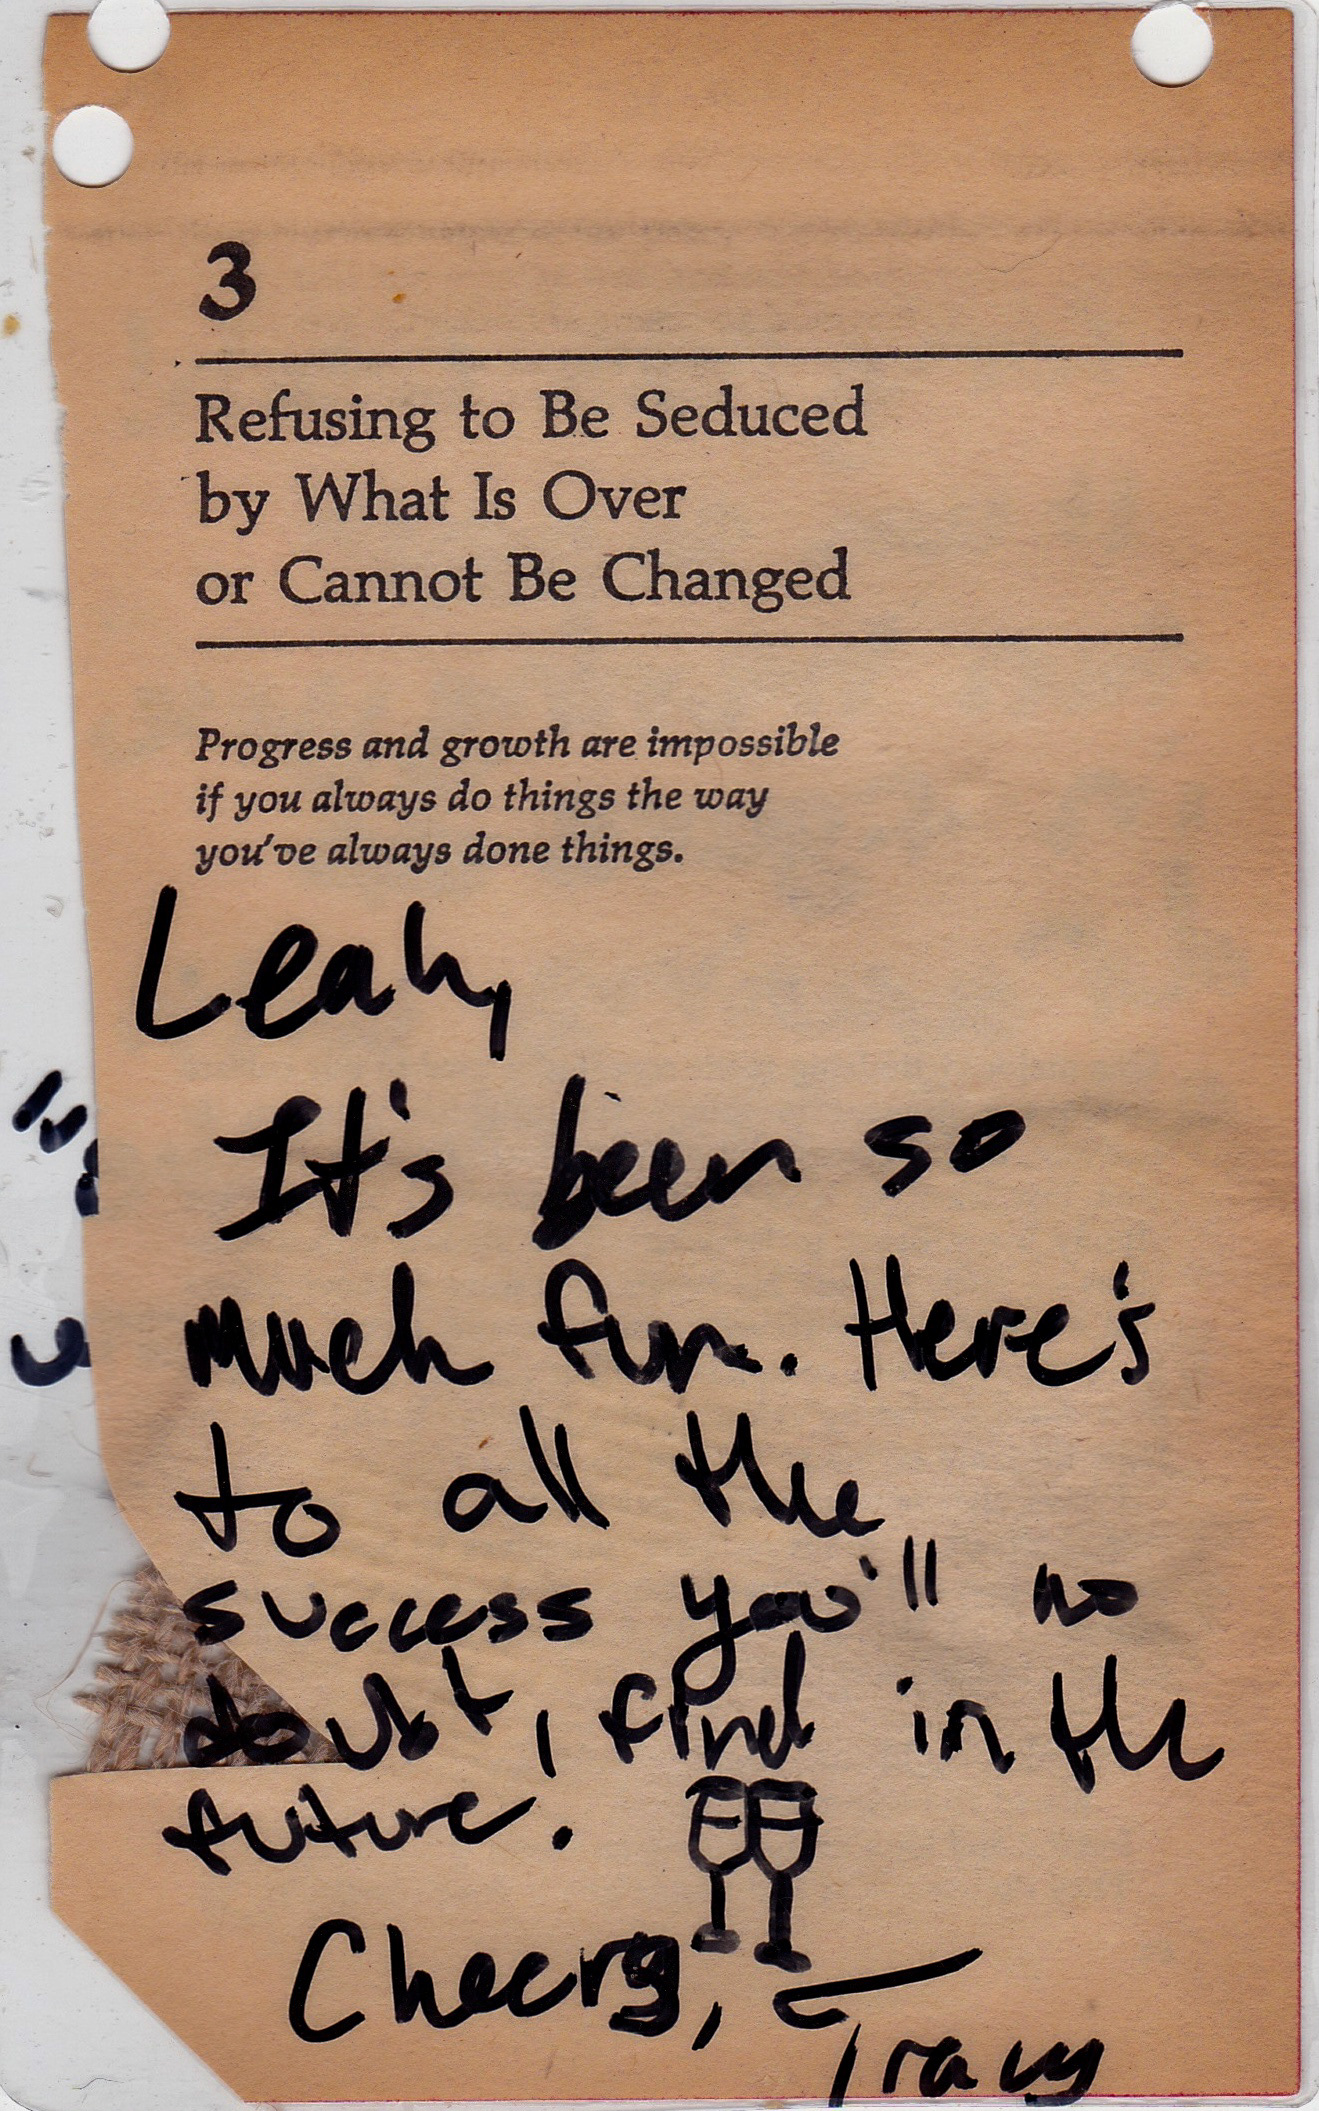 3
Refusing to Be Seduced
by What Is Over
or Cannot Be Changed
Progress and growth are impossible
if you always do things the way
you've always done things.
Leah,
It's been so
much fun. Here's
to all the
success you'll no
doubt, find in the
future.
Cheers,
Tracy